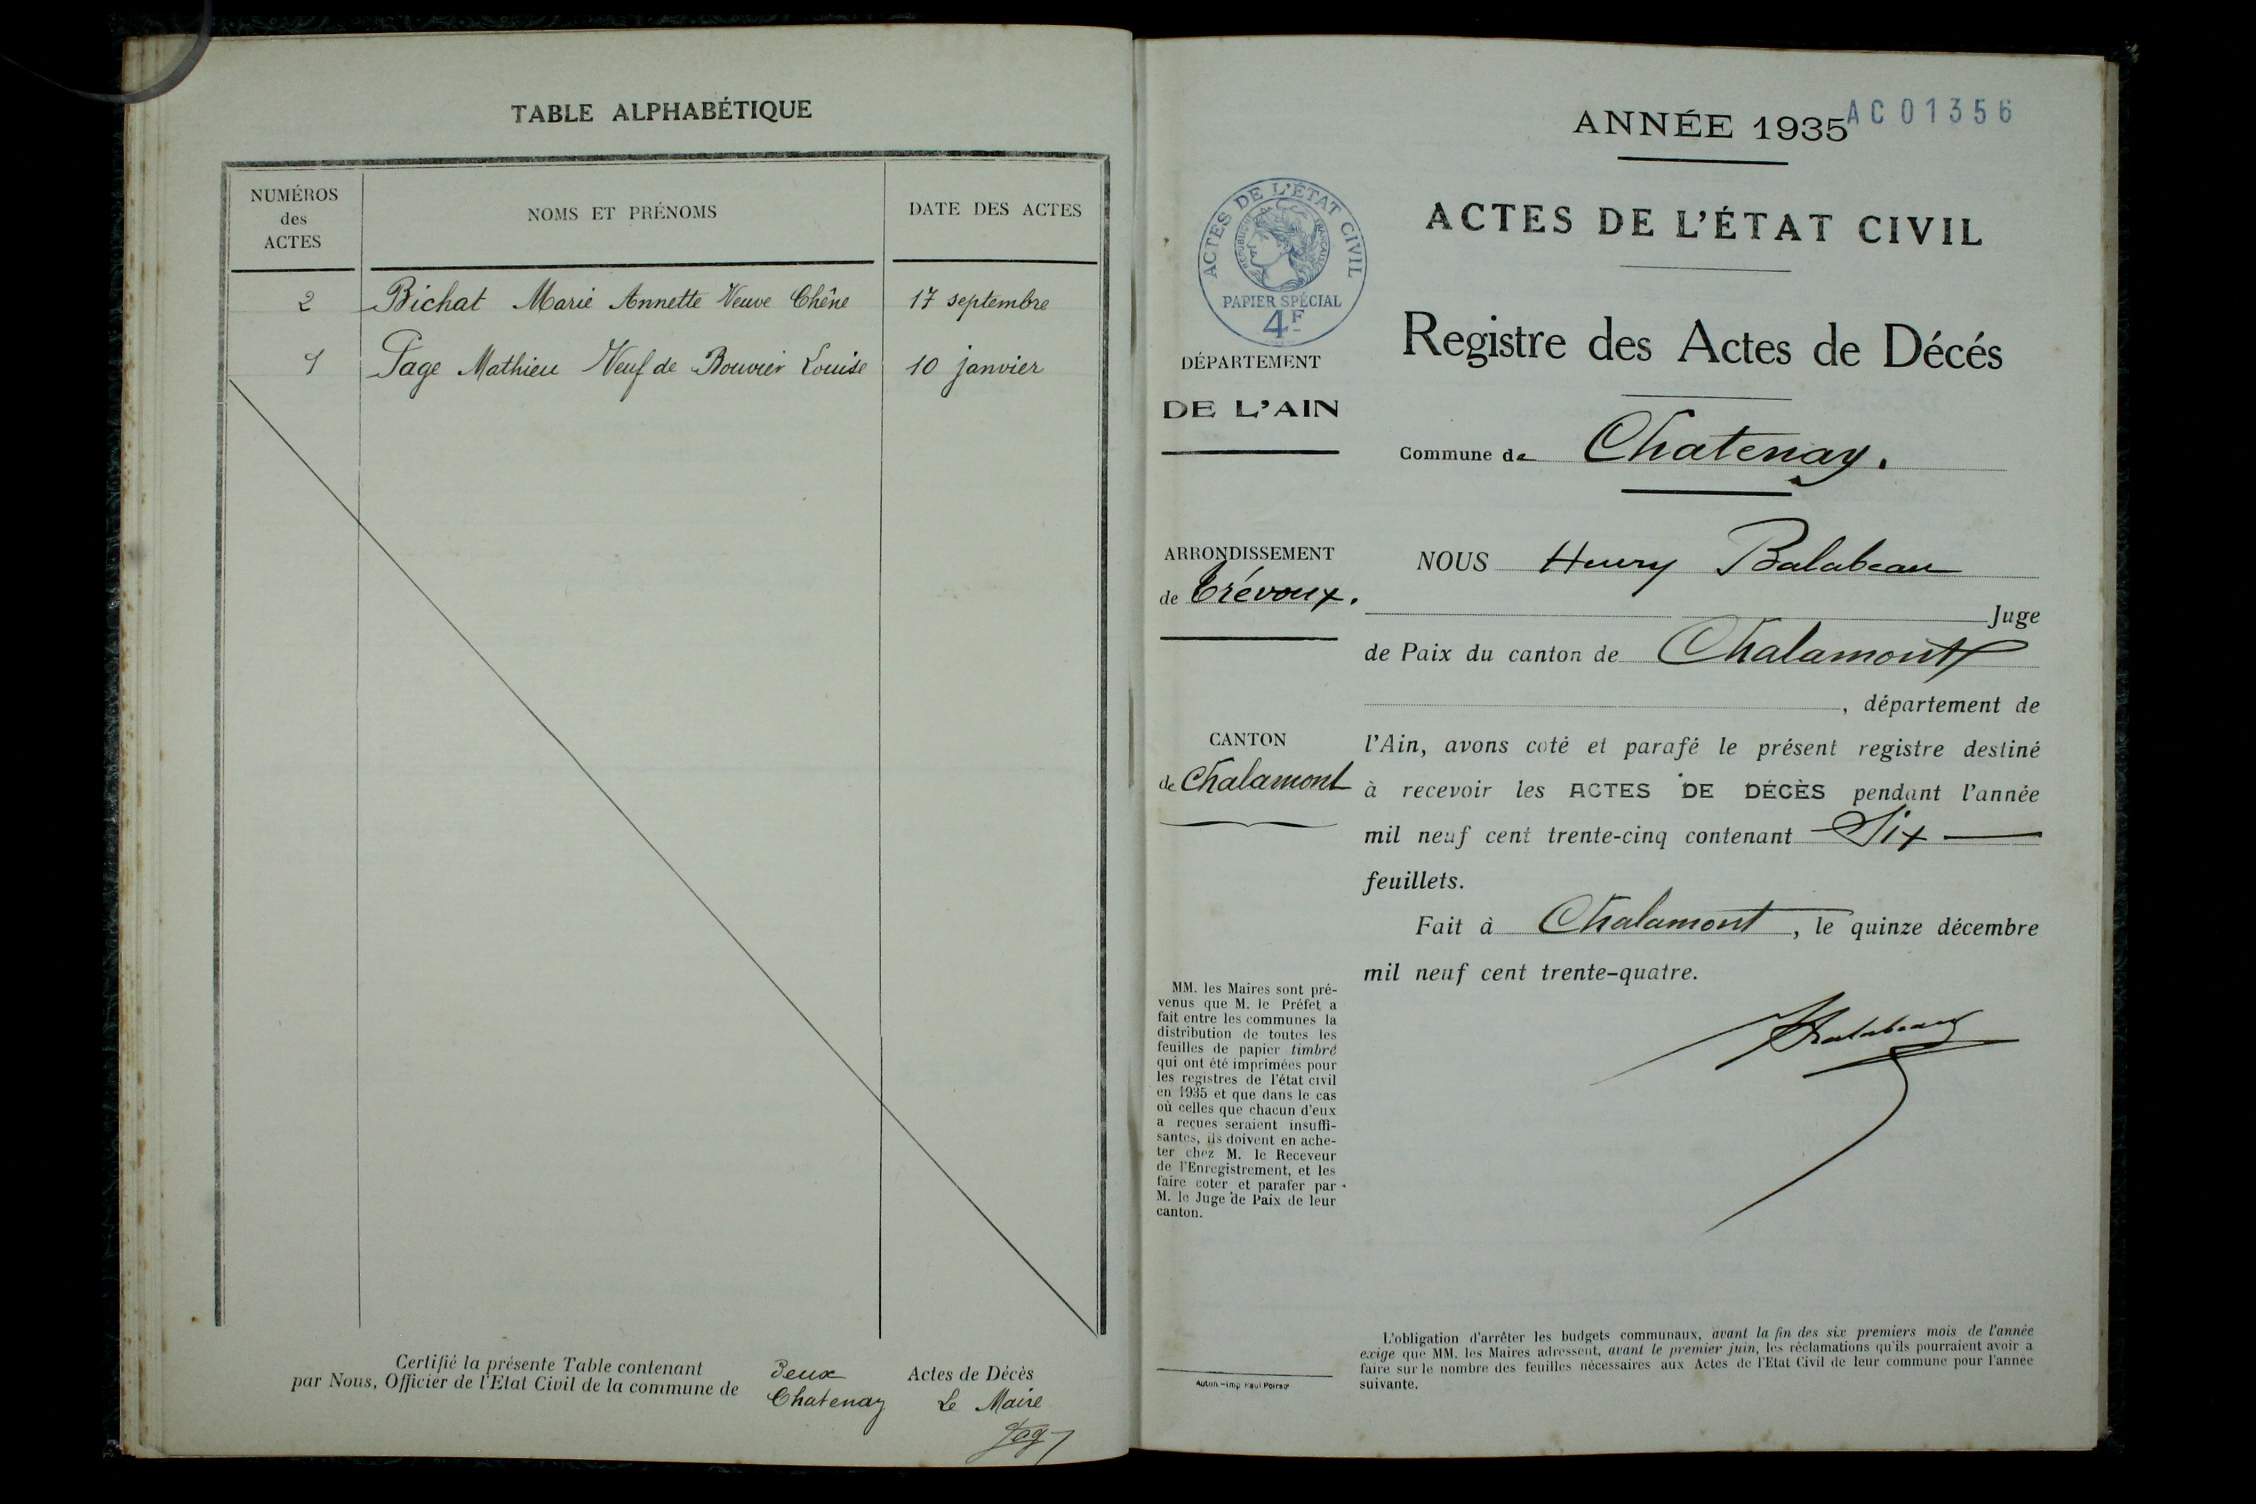 TABLE ALPHABÉTIQUE
NUMÉROS
des
ACTES
NOMS ET PRÉNOMS
DATE DES ACTES
2 Bichat Marie Annette Veuve Chêne 17 septembre
1 Page Mathieu Veuf de Bouvier Louise 10 janvier
Certifié la présente Table contenant Deux Actes de Décès
par Nous, Officier de l'Etat Civil de la commune de Chatenay Le Maire
ANNÉE 1935
AC01356
ACTES DE L'ÉTAT CIVIL
RÉPUBLIQUE FRANÇAISE
PAPIER SPÉCIAL
4F
ACTES DE L'ÉTAT CIVIL
Registre des Actes de Décés
DÉPARTEMENT
DE L'AIN
Commune de Chatenay.
ARRONDISSEMENT
de Trévoux.
CANTON
de Chalamont
NOUS Henry Balabeau
Juge
de Paix du canton de Chalamont
, département de
l'Ain, avons coté et parafé le présent registre destiné
à recevoir les ACTES DE DÉCÈS pendant l'année
mil neuf cent trente-cinq contenant Six
feuillets.
Fait à Chalamont, le quinze décembre
mil neuf cent trente-quatre.
Balabeau
MM. les Maires sont pré-
venus que M. le Préfet a
fait entre les communes la
distribution de toutes les
feuilles de papier timbré
qui ont été imprimées pour
les registres de l'état civil
en 1935 et que dans le cas
où celles que chacun d'eux
a reçues seraient insuffi-
santes, ils doivent en ache-
ter chez M. le Receveur
de l'Enregistrement, et les
faire coter et parafer par
M. le Juge de Paix de leur
canton.
Autun - Imp Paul Poirson
L'obligation d'arrêter les budgets communaux, avant la fin des six premiers mois de l'année
exige que MM. les Maires adressent, avant le premier juin, les réclamations qu'ils pourraient avoir à
faire sur le nombre des feuilles nécessaires aux Actes de l'Etat Civil de leur commune pour l'année
suivante.